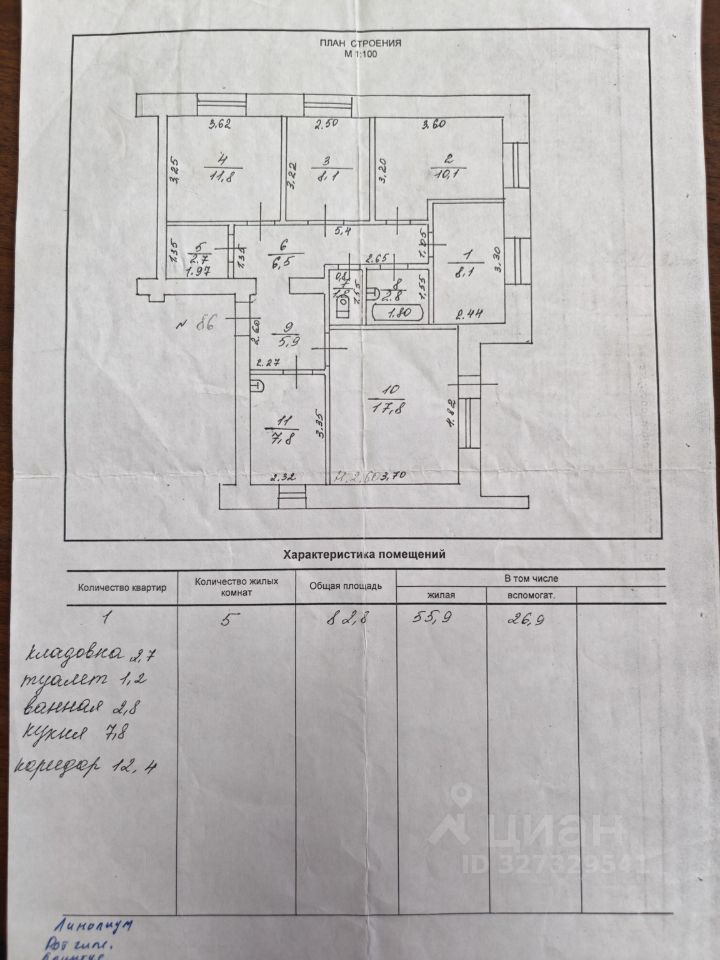 ПЛАН СТРОЕНИЯ
М 1:100
3,62
2.50
3.60
3,25
4
11,8
3,22
3
8,1
3,20
2
10,1
5,4
1,35
5
2.7
1.97
1,35
6
6,5
2.65
1
8,1
3,30
2.44
1,55
8
2.8
1,80
N 86
2.60
9
5,9
2.27
10
17,8
4,82
11
7,8
3,35
2.32
H. 2,60
3,70
Характеристика помещений
Количество квартир
Количество жилых комнат
Общая площадь
В том числе
жилая
вспомогат.
1
5
82,8
55,9
26,9
кладовка 2,7
туалет 1,2
ванная 2,8
кухня 7,8
коридор 12,4
циан
Линолиум